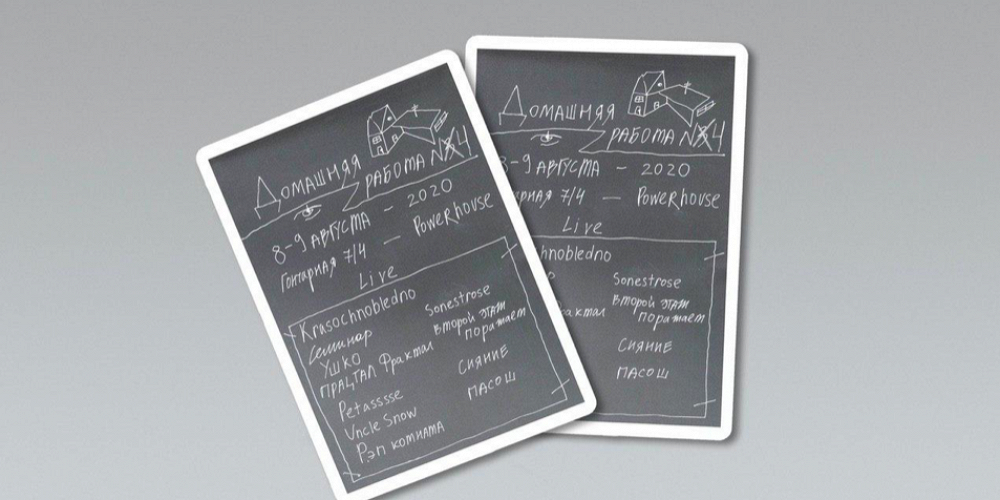 ДОМАШНЯЯ
РАБОТА №4
8-9 АВГУСТА — 2020
Гончарная 7/4 — PoweRhouse
Live
Krasochnobledno
Семинар
УШКО
ПРАЦТАЛ Фрактал
Petasssse
Uncle Snow
Рэп комната
Sonestrose
Второй этаж
поражает
СИЯНИЕ
ПАСОШ
ДОМАШНЯЯ
РАБОТА №4
8-9 АВГУСТА — 2020
рная 7/4 — PoweRhouse
Live
chnobledno
рактал
Sonestrose
Второй этаж
поражает
СИЯНИЕ
ПАСОШ